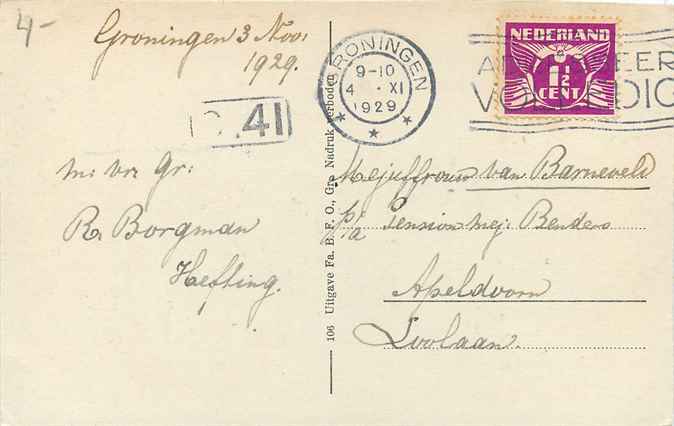 4-
Groningen 3 Nov.
1929.
GRONINGEN
9-10
4 XI
1929
NEDERLAND
1½
CENT
41
m: vr: gr:
R. Borgman
Hefting.
106 Uitgave Fa. B. F. O., Gro Nadruk verboden
Mejuffrouw van Barneveld
p/a Pension mej: Benders
Apeldoorn
Loolaan.